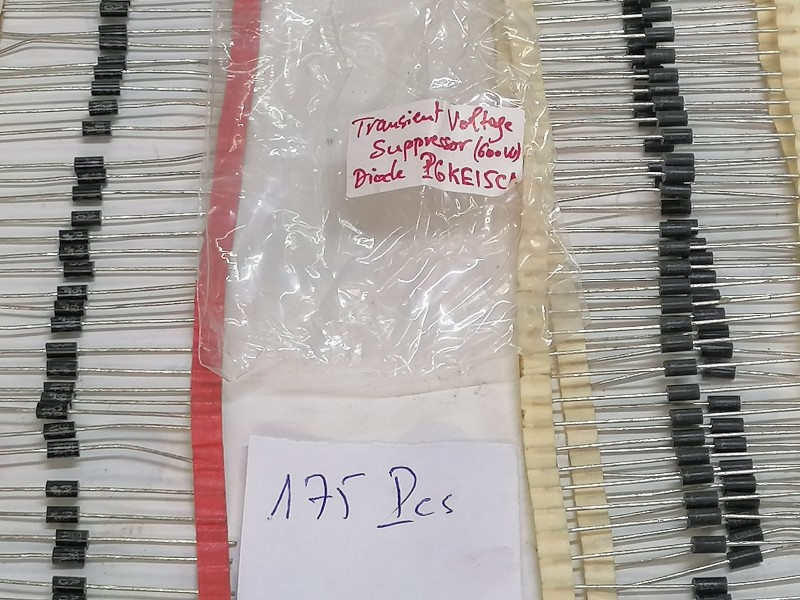 Transient Voltage
Suppressor (600W)
Diode P6KE15CA
175 Pcs